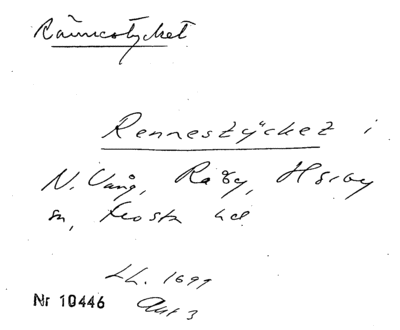 Rännestycket
Rennestÿcket i
N. Vång, Råby, Hörby
sn, Frosta hd
LL. 1699
Akt 3
Nr 10446